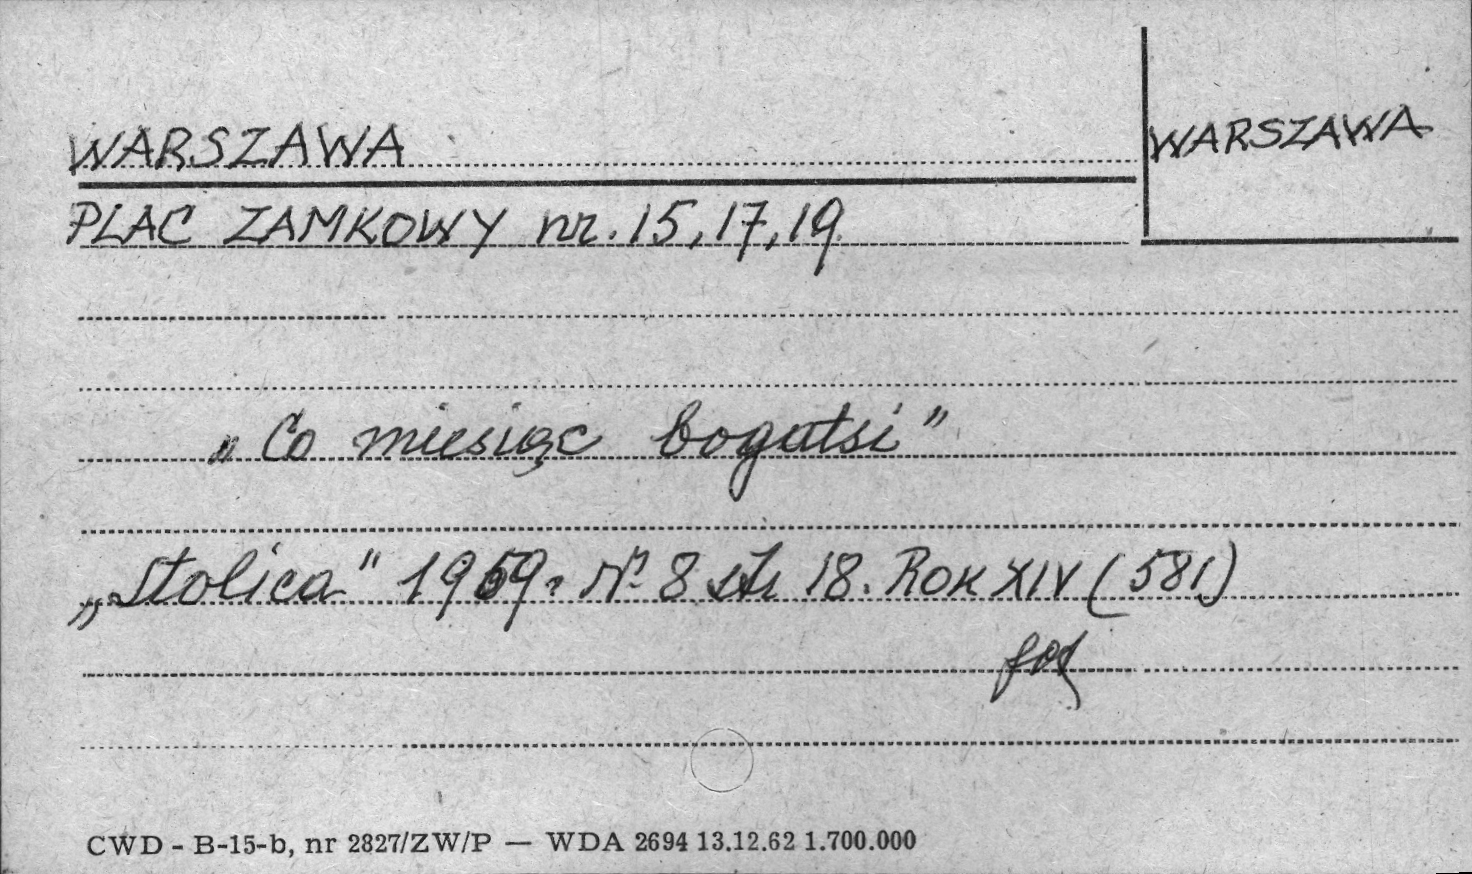 WARSZAWA
WARSZAWA
PLAC ZAMKOWY nr. 15, 17, 19
„Co miesiąc bogatsi"
„Stolica" 1959 r Nº 8 str 18. ROK XIV (581)
CWD - B-15-b, nr 2827/ZW/P — WDA 2694 13.12.62 1.700.000